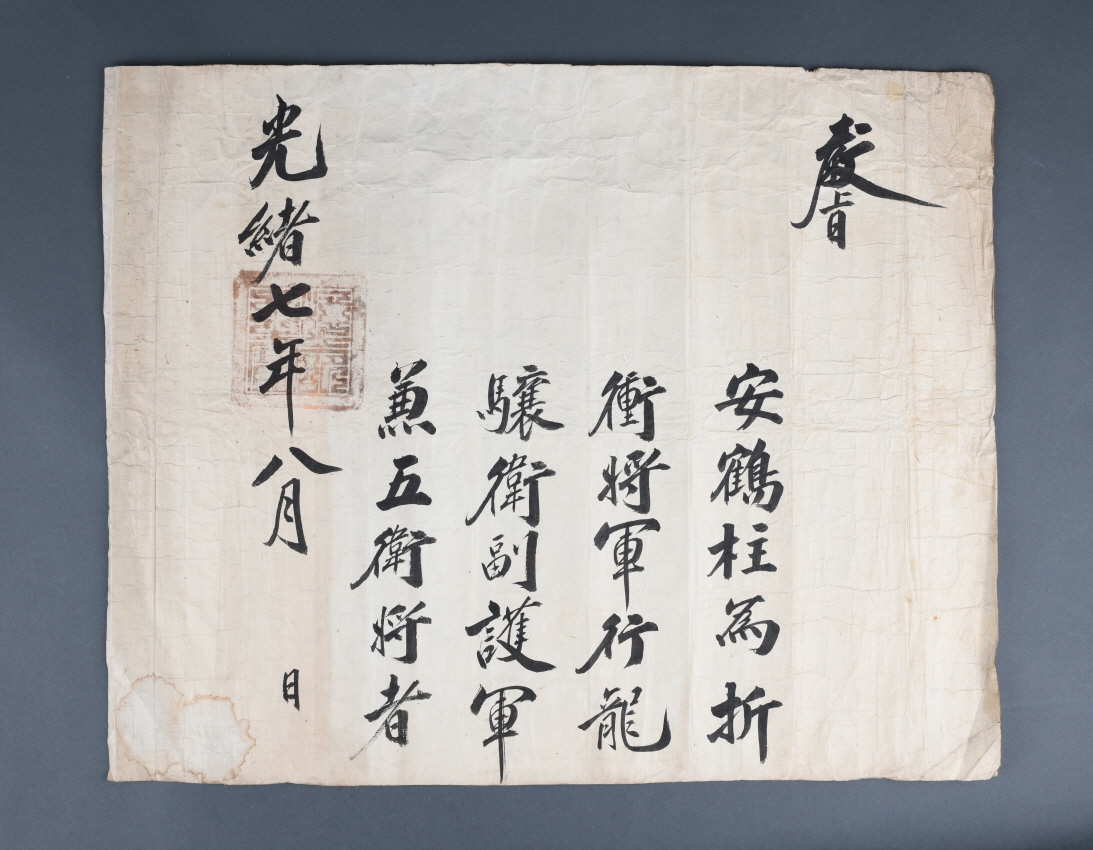 敎旨
安鶴柱爲折
衝將軍行龍
驤衛副護軍
兼五衛將者
光緖七年八月 日